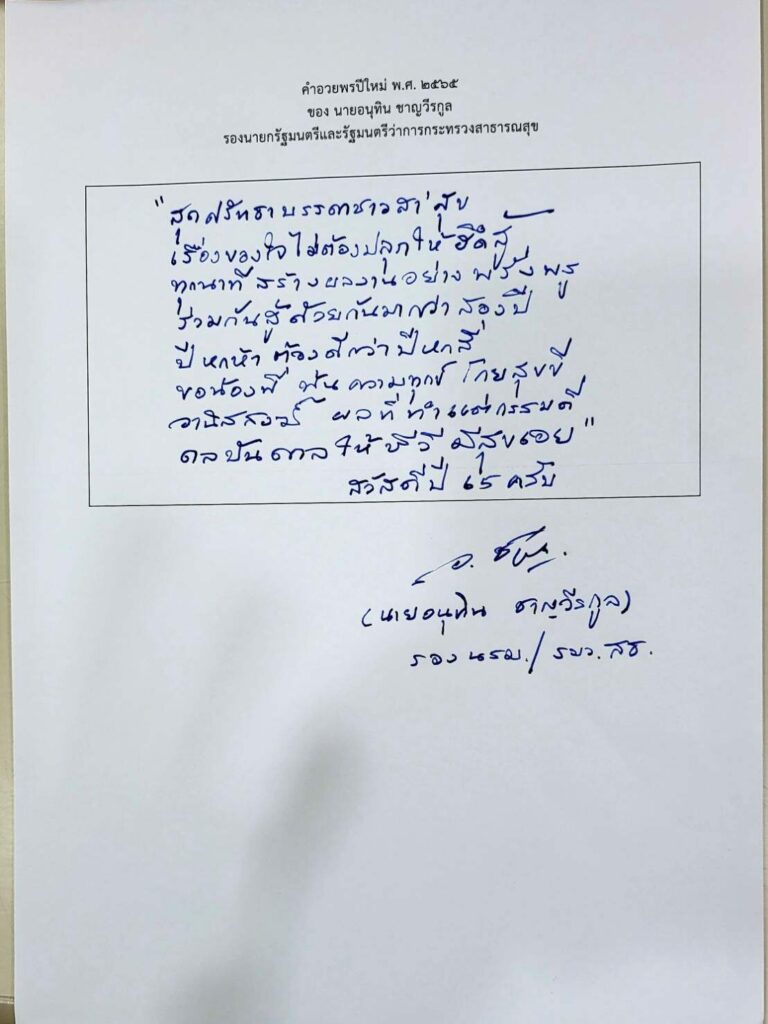 คำอวยพรปีใหม่ พ.ศ. ๒๕๖๕
ของ นายอนุทิน ชาญวีรกูล
รองนายกรัฐมนตรีและรัฐมนตรีว่าการกระทรวงสาธารณสุข
"สุดศรัทธาบรรดาชาวสา'สุข
เรื่องของใจไม่ต้องปลุกให้ฮึดสู้
ทุกนาทีสร้างผลงานอย่างพรั่งพรู
ร่วมกันสู้ด้วยกันมากว่าสองปี
ปีหกห้าต้องดีกว่าปีหกสี่
ขอน้องพี่ พ้นความทุกข์ โกยสุขขี
อานิสสงฆ์ ผลที่ทำแต่กรรมดี
ดลบันดาลให้ชีวีมีสุขเอย"
สวัสดีปี ๖๕ ครับ
(นายอนุทิน ชาญวีรกูล)
รองนรม./รมว.สธ.